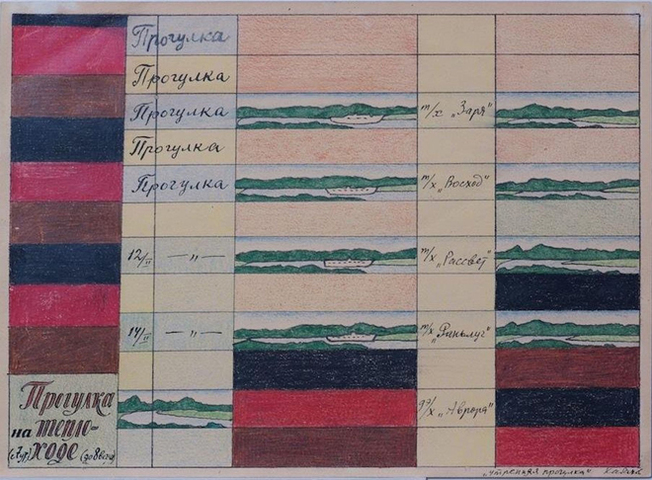 Прогулка
Прогулка
Прогулка т/х „Заря"
Прогулка
Прогулка т/х „Восход"
12/II —„— т/х „Рассвет"
14/II —„— т/х „Раньлуг"
Прогулка
на тепло-
ходе
д/х „Аврора"
„Утренняя прогулка"